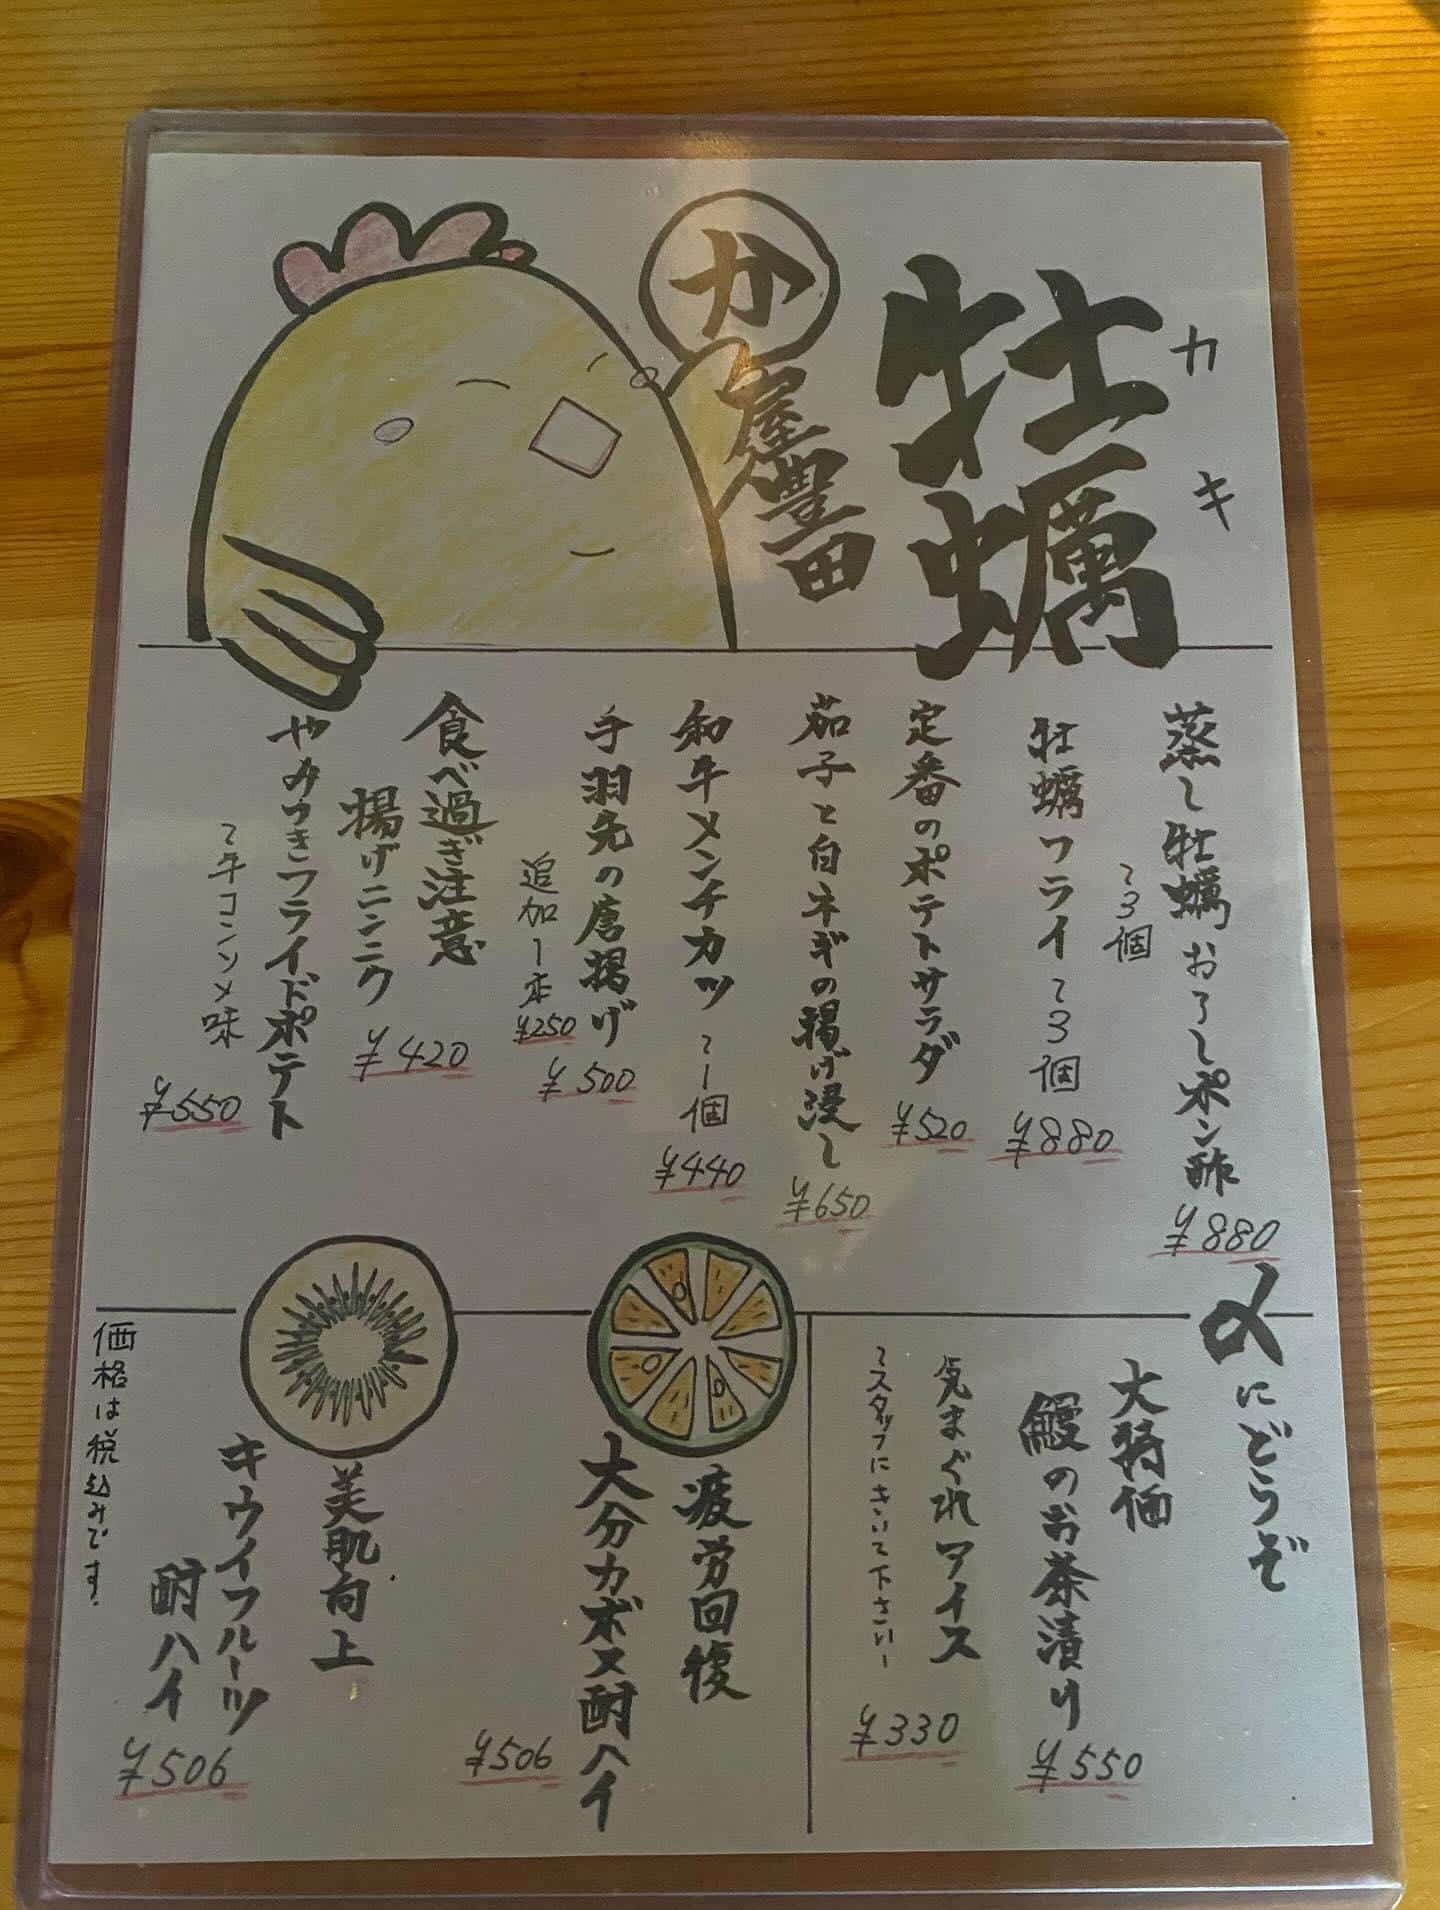 牡蠣
カキ
か
屋豊田
蒸し牡蠣おろしポン酢
~3個
¥880
牡蠣フライ~3個
¥880
定番のポテトサラダ
¥520
茄子と白ネギの揚げ浸し
¥650
和牛メンチカツ~1個
¥440
手羽先の唐揚げ
¥500
追加1本
¥250
食べ過ぎ注意
揚げニンニク
¥420
やみつきフライドポテト
~牛コンソメ味
¥550
〆にどうぞ
大特価
鰻のお茶漬け
¥550
気まぐれアイス
~スタッフにきいて下さい~
¥330
疲労回復
大分カボス酎ハイ
¥506
美肌向上
キウイフルーツ
酎ハイ
¥506
価格は税込みです.